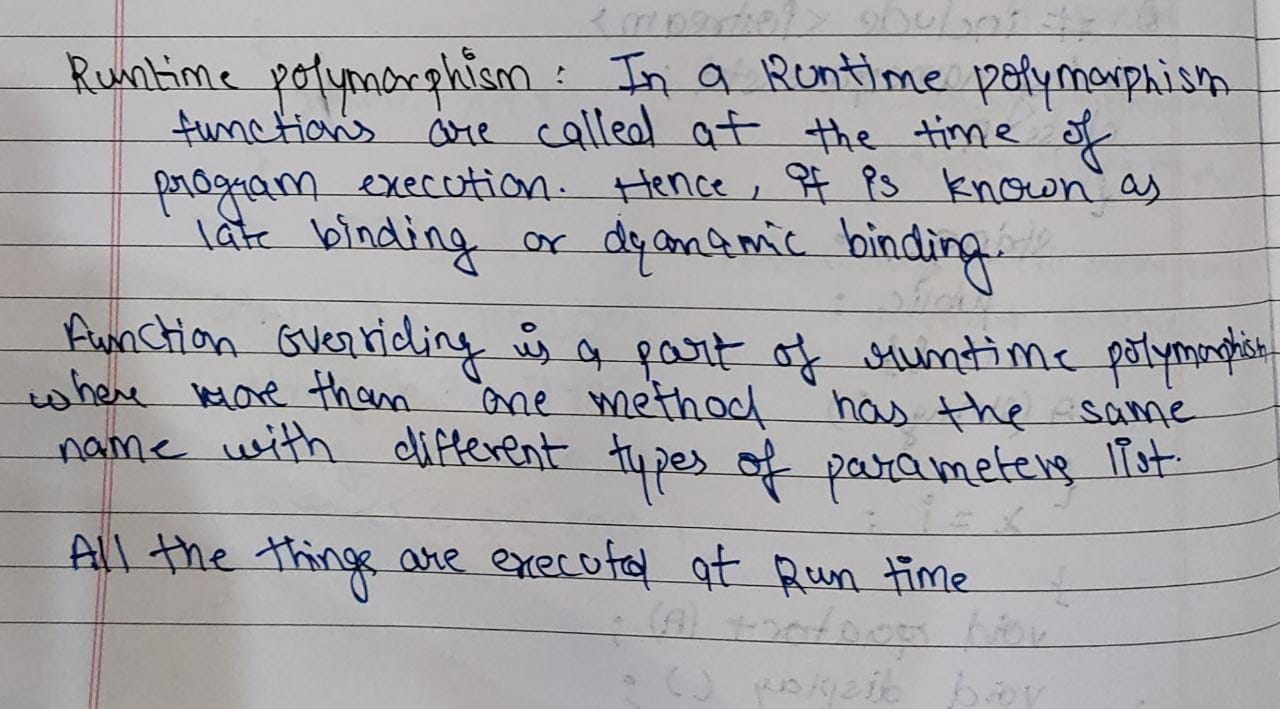 Runtime polymorphism : In a Runtime polymorphism
functions are called at the time of
program execution. Hence, it is known as
late binding or dyanamic binding.
Function overriding is a part of runtime polymorphism
where more than one method has the same
name with different types of parameters list.
All the things are executed at Run time